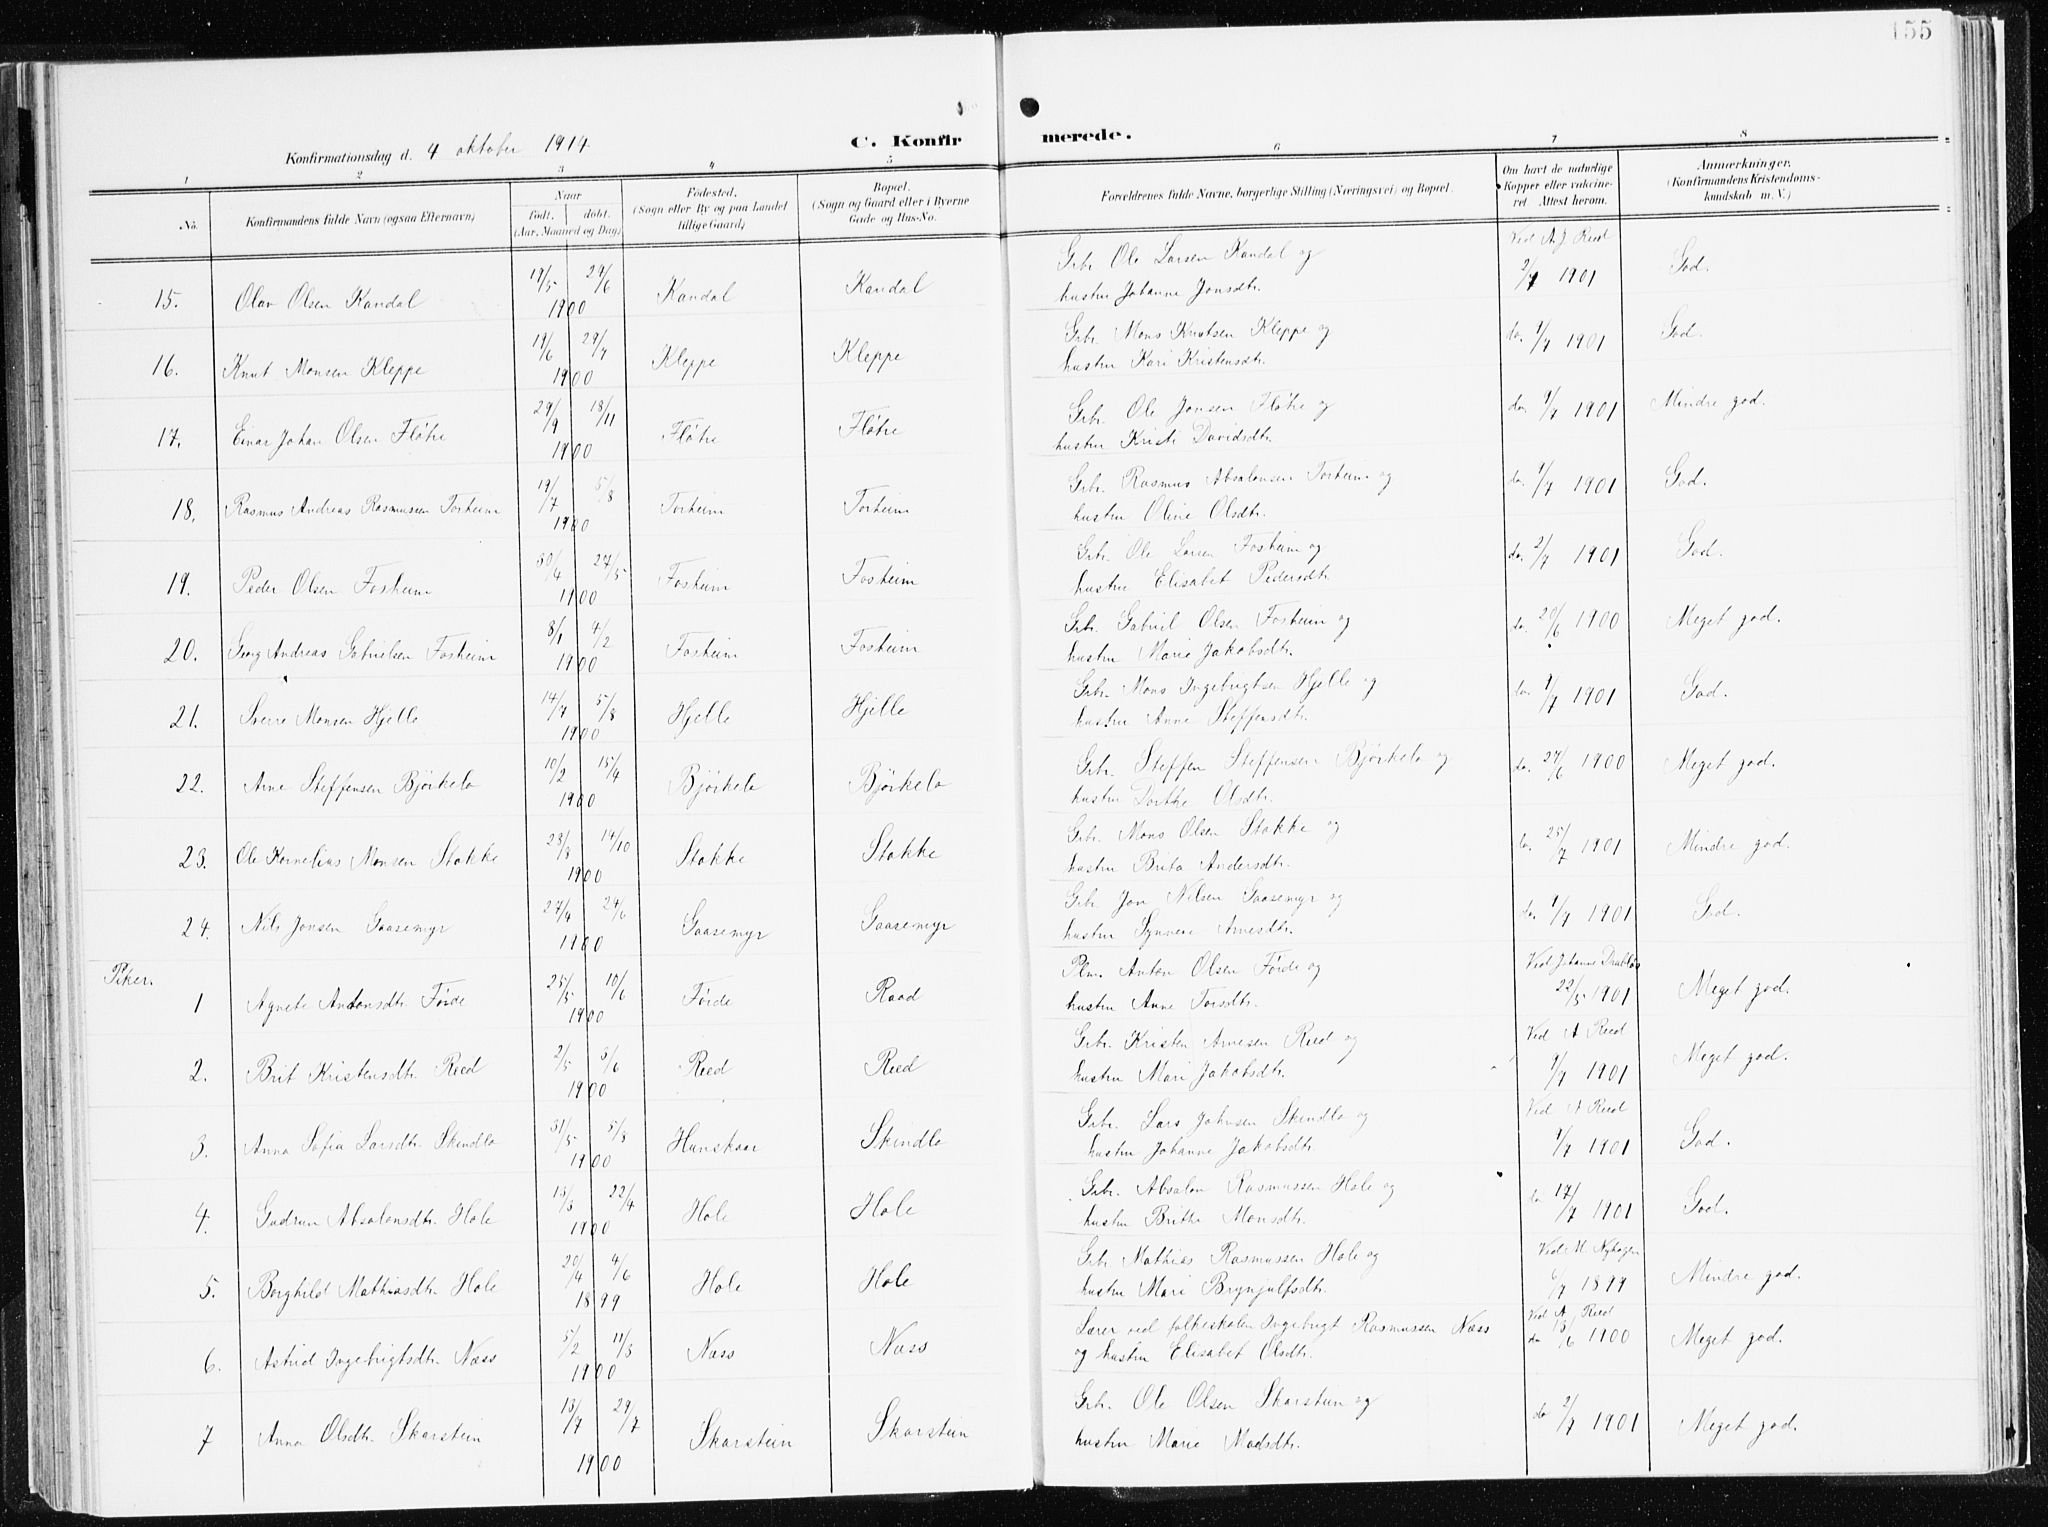 155
Konfirmationsdag d. 4 oktober 1914.
C. Konfir
merede.
1 2 3 4 5 6 7 8
No. Konfirmandens fulde Navn (ogsaa Efternavn) Naar født. døbt. (Aar, Maaned og Dag) Fødested. (Sogn eller By og paa Landet tillige Gaard) Bopæl. (Sogn og Gaard eller i Byerne Gade og Hus-No. Forældrenes fulde Navne, borgerlige Stilling (Næringsvei) og Bopæl. Om havt de naturlige Kopper eller vakcineret Attest herom. Anmærkninger. (Konfirmandens Kristendomskundskab m. V.)
15. Olav Olsen Kandal 19/5 24/6 1900 Kandal Kandal Grbr. Ole Larsen Kandal og Ved A. J. Reed
hustru Johanne Jonsdtr. 2/7 1901 God.
16. Knut Monsen Kleppe 19/6 29/7 1900 Kleppe Kleppe Grbr. Mons Knutsen Kleppe og do. 9/7 1901 God.
hustru Kari Kristensdtr.
17. Einar Johan Olsen Fløtre 29/9 18/11 1900 Fløtre Fløtre Grbr. Ole Jonsen Fløtre og do. 9/7 1901 Mindre god.
hustru Kristi Davidsdtr.
18. Rasmus Andreas Rasmussen Torheim 19/7 5/8 1900 Torheim Torheim Grbr. Rasmus Absalonsen Torheim og do. 9/7 1901 God.
hustru Oline Olsdtr.
19. Peder Olsen Fosheim 30/4 27/5 1900 Fosheim Fosheim Grbr. Ole Larsen Fosheim og do. 2/7 1901 God.
hustru Elisabet Pedersdtr.
20. Georg Andreas Gabrielsen Fosheim 8/1 4/2 1900 Fosheim Fosheim Grbr. Gabriel Olsen Fosheim og do. 20/6 1900 Meget god.
hustru Marie Jakobsdtr.
21. Sverre Monsen Hjelle 14/7 5/8 1900 Hjelle Hjelle Grbr. Mons Ingebrigtsen Hjelle og do. 9/7 1901 God.
hustru Anne Steffensdtr.
22. Arne Steffensen Bjørkelo 10/2 15/4 1900 Bjørkelo Bjørkelo Grbr. Steffen Steffensen Bjørkelo og do. 27/6 1900 Meget god.
hustru Dorthe Olsdtr.
23. Ole Kornelius Monsen Stokke 23/8 14/10 1900 Stokke Stokke Grbr. Mons Olsen Stokke og do. 25/7 1901 Mindre god.
hustru Brita Andersdtr.
24. Nils Jonsen Gaasemyr 27/4 24/6 1900 Gaasemyr Gaasemyr Grbr. Jon Nilsen Gaasemyr og do. 9/7 1901 God.
hustru Synneve Arnesdtr.
Piker.
1 Agnete Antonsdtr. Førde 25/5 10/6 1900 Førde Raad Plm. Anton Olsen Førde og Ved Johanne Drabløs
hustru Anne Torsdtr. 22/5 1901 Meget god.
2. Brit Kristensdtr. Reed 2/5 3/6 1900 Reed Reed Grbr. Kristen Arnesen Reed og Ved A Reed
hustru Mari Jakobsdtr. 9/7 1901 Meget god.
3. Anna Sofia Larsdtr. Skindlo 31/5 5/8 1900 Hunskaar Skindlo Grbr. Lars Johnsen Skindlo og Ved A Reed
hustru Johanne Jakobsdtr. 9/7 1901 God.
4. Gudrun Absalonsdtr. Hole 13/3 22/4 1900 Hole Hole Grbr. Absalon Rasmussen Hole og do 17/7 1901 God.
hustru Brithe Monsdtr.
5. Borghild Mathiasdtr. Hole 20/4 4/6 1899 Hole Hole Grb Mathias Rasmussen Hole og Ved M. Nyhagen
hustru Mari Brynjulfsdtr. 6/7 1899 Mindre god.
6. Astrid Ingebrigtsdtr. Næss 5/2 11/3 1900 Næss Næss Lærer ved folkeskolen Ingebrigt Rasmussen Næss Ved A Reed
og hustru Elisabet Olsdtr. do 13/6 1900 Meget god.
7 Anna Olsdtr. Skarstein 13/7 29/7 1900 Skarstein Skarstein Grbr. Ole Olsen Skarstein og do 2/7 1901 Meget god.
hustru Marie Madsdtr.